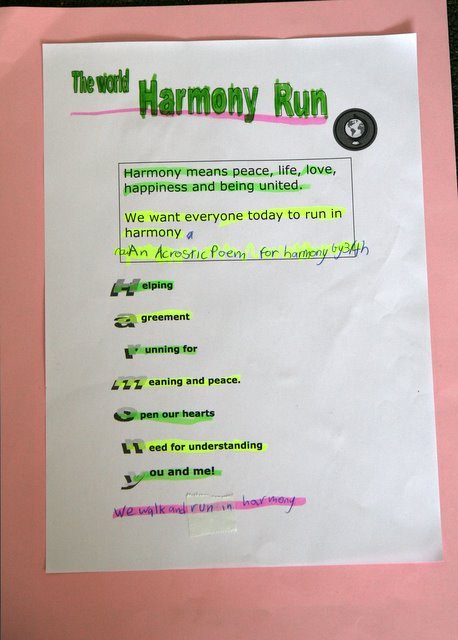 The world Harmony Run
Harmony means peace, life, love,
happiness and being united.
We want everyone today to run in
harmony a
An Acrostic Poem for harmony by 3/4h
Helping
agreement
running for
meaning and peace.
open our hearts
need for understanding
you and me!
We walk and run in harmony